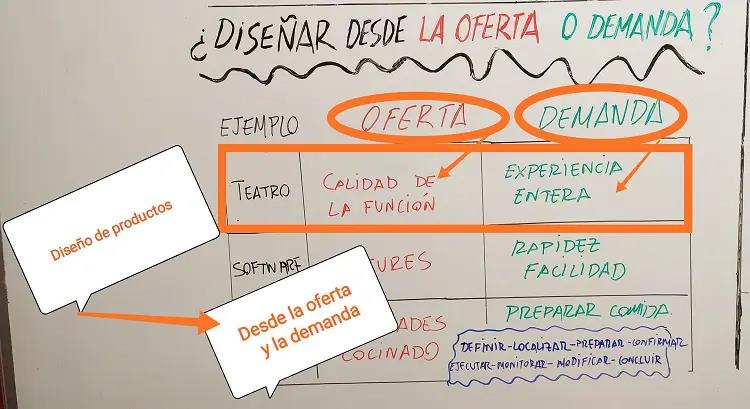 ¿DISEÑAR DESDE LA OFERTA O DEMANDA?
EJEMPLO OFERTA DEMANDA
TEATRO
CALIDAD DE
LA FUNCIÓN
EXPERIENCIA
ENTERA
Diseño de productos
SOFTWARE
RAPIDEZ
FACILIDAD
Desde la oferta
y la demanda
COCINADO
PREPARAR COMIDA
DEFINIR-LOCALIZAR-PREPARAR-CONFIRMAR
EJECUTAR-MONITORAR-MODIFICAR-CONCLUIR